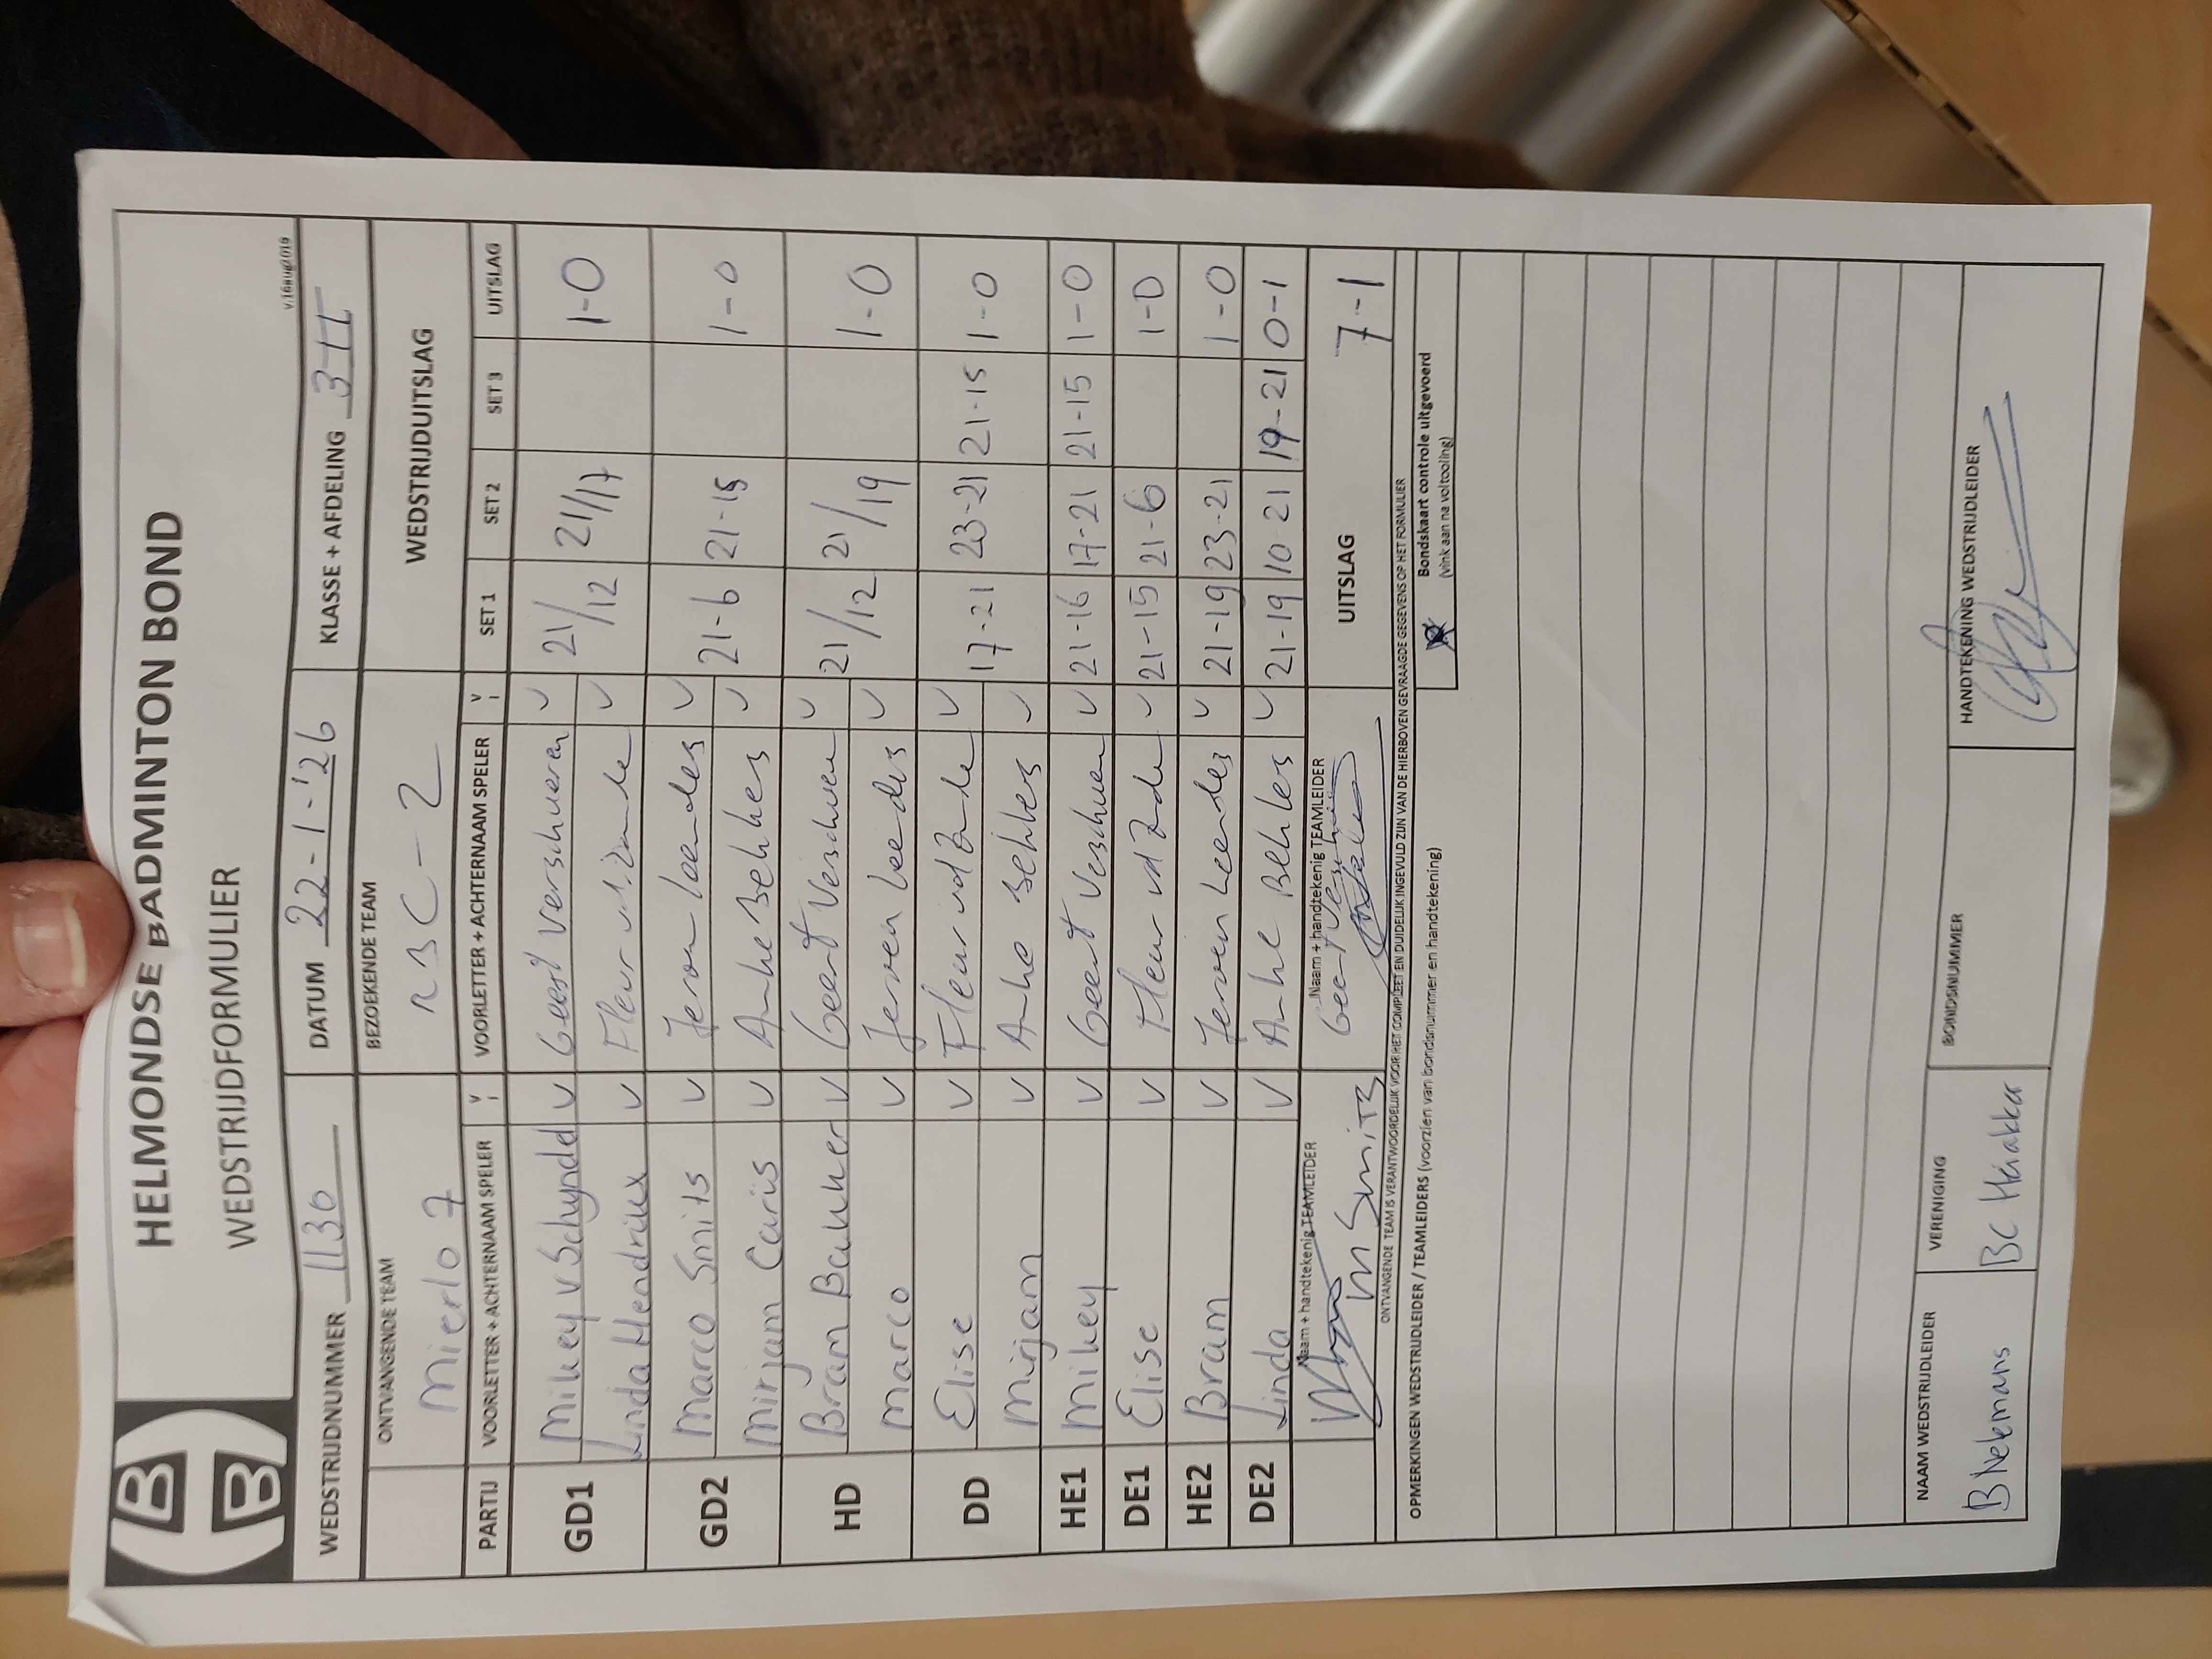 HELMONDSE BADMINTON BOND
WEDSTRIJDFORMULIER
v.16aug2019
WEDSTRIJDNUMMER 1130 DATUM 22-1-'26 KLASSE + AFDELING 3-II
ONTVANGENDE TEAM BEZOEKENDE TEAM WEDSTRIJDUITSLAG
Mierlo 7 RBC-2
PARTIJ VOORLETTER + ACHTERNAAM SPELER V VOORLETTER + ACHTERNAAM SPELER V SET 1 SET 2 SET 3 UITSLAG
GD1 Mikey v Schyndel V Geert Verschueren V 21/12 21/17 1-0
Linda Hendrikx V Fleur V
GD2 Marco Smits V Jeroen Leendes V 21-6 21-15 1-0
Mirjam Cariis V Anke Behkes V
HD Bram Bankker V Geert Verschuren V 21/12 21/19 1-0
Marco V Jeroen Leendes V
DD Elise V Fleur vd Zande V 17-21 23-21 21-15 1-0
Mirjam V Anke Behkes V
HE1 Mikey V Geert Verschueren V 21-16 17-21 21-15 1-0
DE1 Elise V Fleur vd Zande V 21-15 21-6 1-0
HE2 Bram V Jeroen Leendes V 21-19 23-21 1-0
DE2 Linda V Anke Behkes V 21-19 10-21 19-21 0-1
Naam + handtekenig TEAMLEIDER Naam + handtekenig TEAMLEIDER UITSLAG 7-1
M Smits Geert
ONTVANGENDE TEAM IS VERANTWOORDELIJK VOOR HET COMPLEET EN DUIDELIJK INGEVULD ZIJN VAN DE HIERBOVEN GEVRAAGDE GEGEVENS OP HET FORMULIER
OPMERKINGEN WEDSTRIJDLEIDER / TEAMLEIDERS (voorzien van bondsnummer en handtekening) Bondskaart controle uitgevoerd
(vink aan na voltooiing)
NAAM WEDSTRIJDLEIDER VERENIGING BONDSNUMMER HANDTEKENING WEDSTRIJDLEIDER
B Nekemans BC Hakka